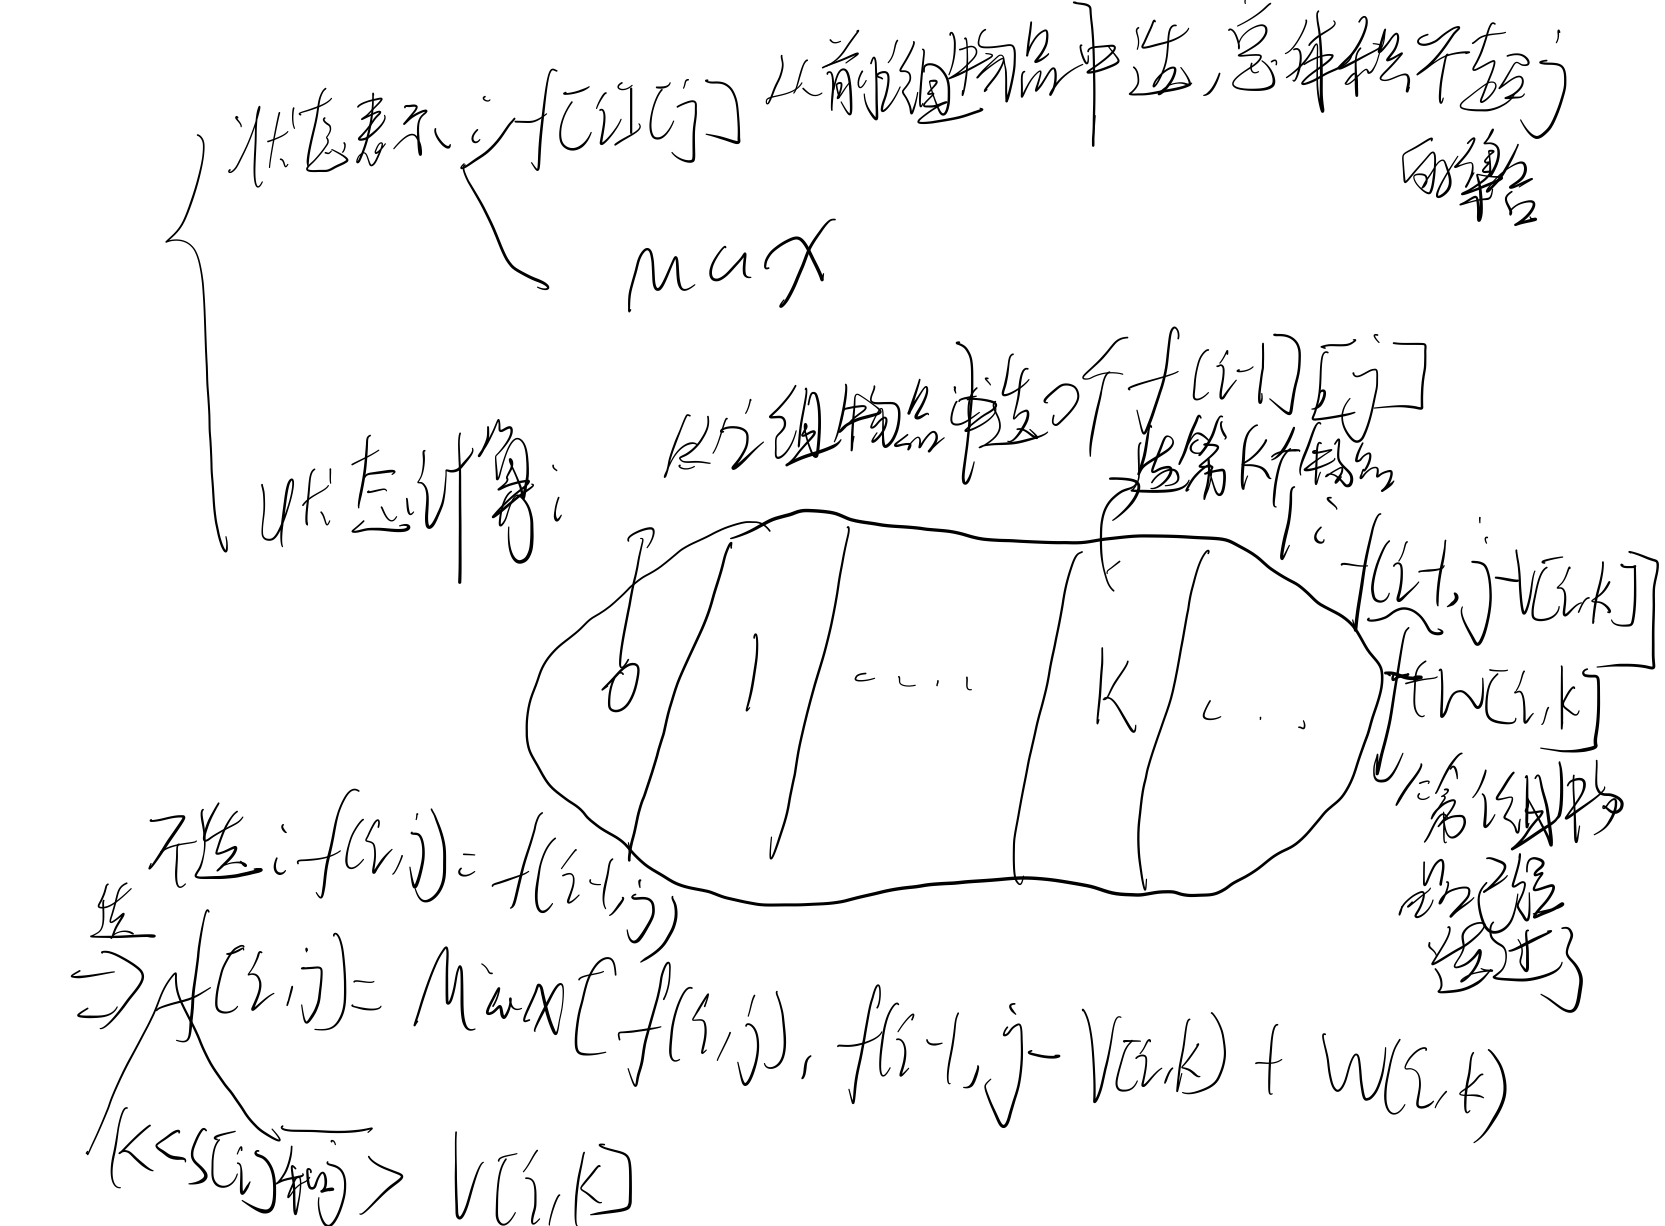 状态表示: f[i][j] 从前i组物品中选,总体积不超j
的集合
max
从i组物品中选0个 f[i-1][j]
状态计算:
选第K个物品:
f(i-1,j-V[i,k]]
+W[i,k]
0 1 .... K ...
第i组物
品已经
选过了
不选:f(i,j)=f(i-1,j)
选
=> f(i,j)=Max[f(i,j),f(i-1,j-V(i,k)+W(i,k)
K<S[i]和j>V[i,k]